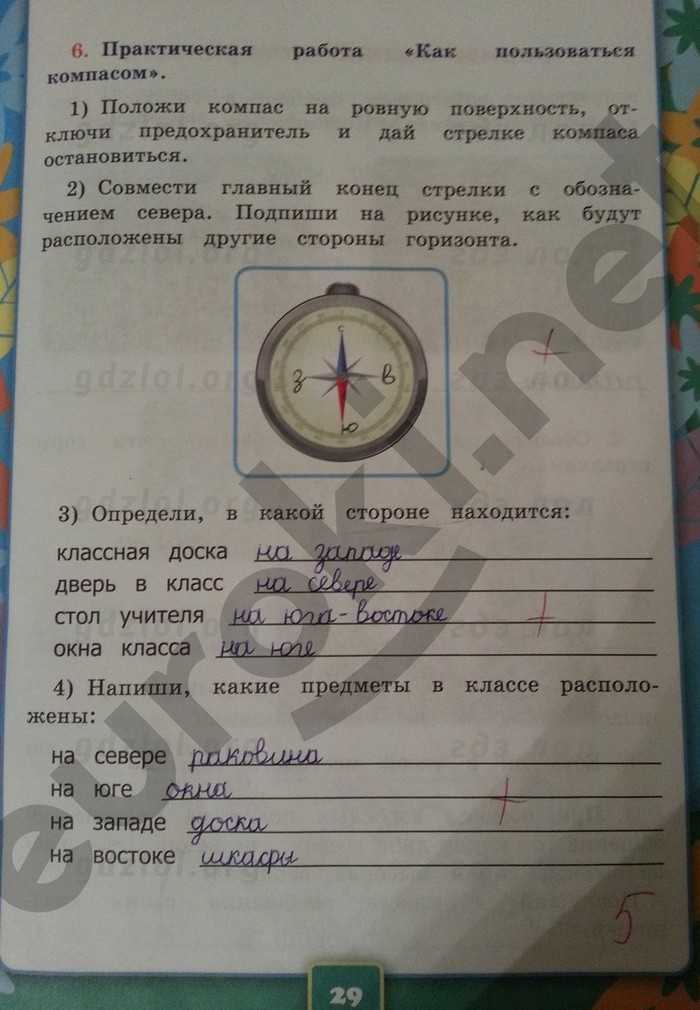 6. Практическая работа «Как пользоваться
компасом».
1) Положи компас на ровную поверхность, от-
ключи предохранитель и дай стрелке компаса
остановиться.
2) Совмести главный конец стрелки с обозна-
чением севера. Подпиши на рисунке, как будут
расположены другие стороны горизонта.
С
З В
Ю
3) Определи, в какой стороне находится:
классная доска на западе
дверь в класс на севере
стол учителя на юга-востоке
окна класса на юге
4) Напиши, какие предметы в классе располо-
жены:
на севере раковина
на юге окна
на западе доска
на востоке шкафы
5
29
euroki.net
gdzlol.org